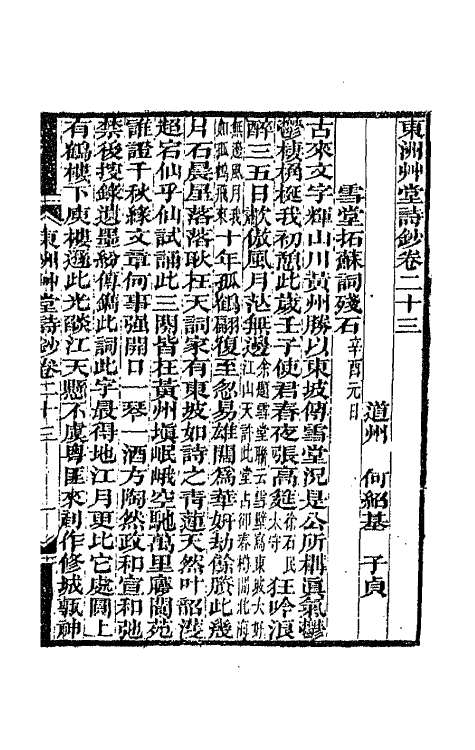 東洲艸堂詩鈔卷二十三
道州 何紹基 子貞
雪堂拓蘇詞殘石 辛酉元日
古來文字輝山川黃州勝以東坡傳雪堂況是公所構眞氣鬱
鬱棲榱梴我初憩此歲壬子使君春夜張高筵 徐石民太守 狂吟浪
醉三五日歗傲風月茫無邊 余題雪堂聯云當壁爲東坡大好江山天許此堂占卻奉樽開北海
無邊風月我如孤鶴飛來 十年孤鶴翩復至忽易雄關爲華妍劫餘賸此幾
片石晨星落落耿在天詞家有東坡如詩之青蓮天然叶韶濩
超宕仙乎仙試誦此三闋皆在黃州塡岷峨空馳萬里 閬苑
誰證千秋緣文章何事強開口一琴一酒方陶然政和宣和弛
禁後搜錄遺墨紛傳鐫此詞此字最得地江月更比它處圓上
有鶴樓下庾樓遜此光燄江天懸不虞粵匪來剗作修城甎神
東洲艸堂詩鈔卷二十三 一